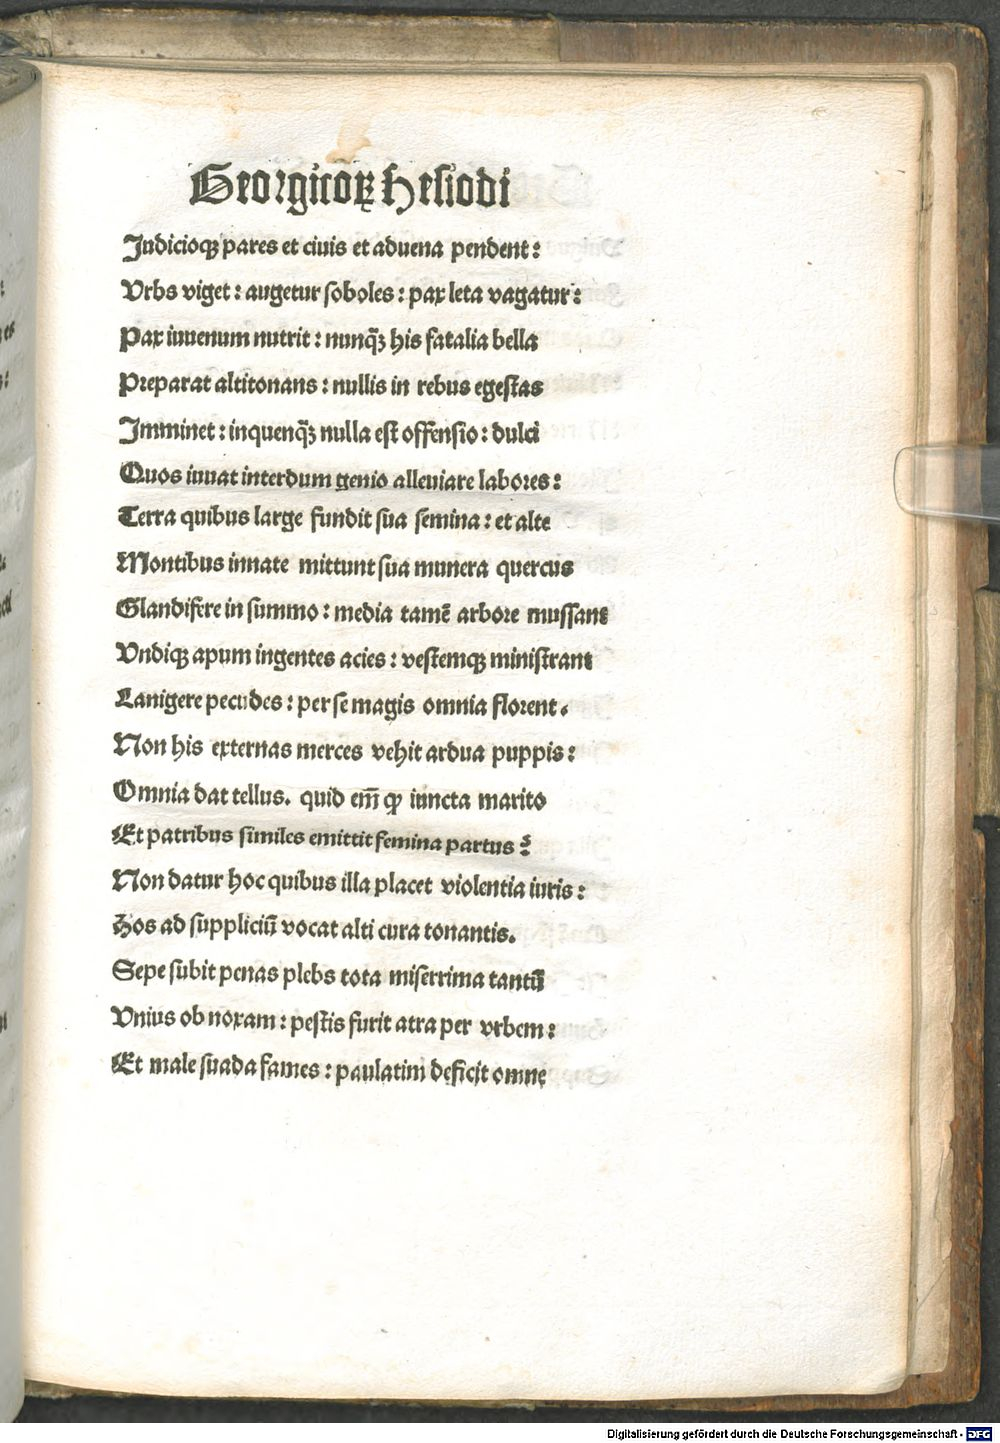 Georgicoꝝ Hesiodi
Judicioqꝫ pares et ciuis et aduena pendent:
Vrbs viget: augetur soboles: pax leta vagatur:
Pax iuuenum nutrit: nunq̃ꝫ his fatalia bella
Preparat altitonans: nullis in rebus egestas
Imminet: inquenq̃ꝫ nulla est offensio: dulci
Quos iuuat interdum genio alleuiare labores:
Terra quibus large fundit sua semina: et alte
Montibus innate mittunt sua munera quercus
Glandifere in summo: media tamẽ arbore mussant
Vndiqꝫ apum ingentes acies: vestemqꝫ ministrant
Lanigere pecudes: per se magis omnia florent.
Non his externas merces vehit ardua puppis:
Omnia dat tellus. quid em̃ ꝙ iuncta marito
Et patribus similes emittit femina partus?
Non datur hoc quibus illa placet violentia iuris:
Hos ad suppliciũ vocat alti cura tonantis.
Sepe subit penas plebs tota miserrima tantũ
Vnius ob noxam: pestis furit atra per vrbem:
Et male suada fames: paulatim deficit omne
Digitalisierung gefördert durch die Deutsche Forschungsgemeinschaft - DFG